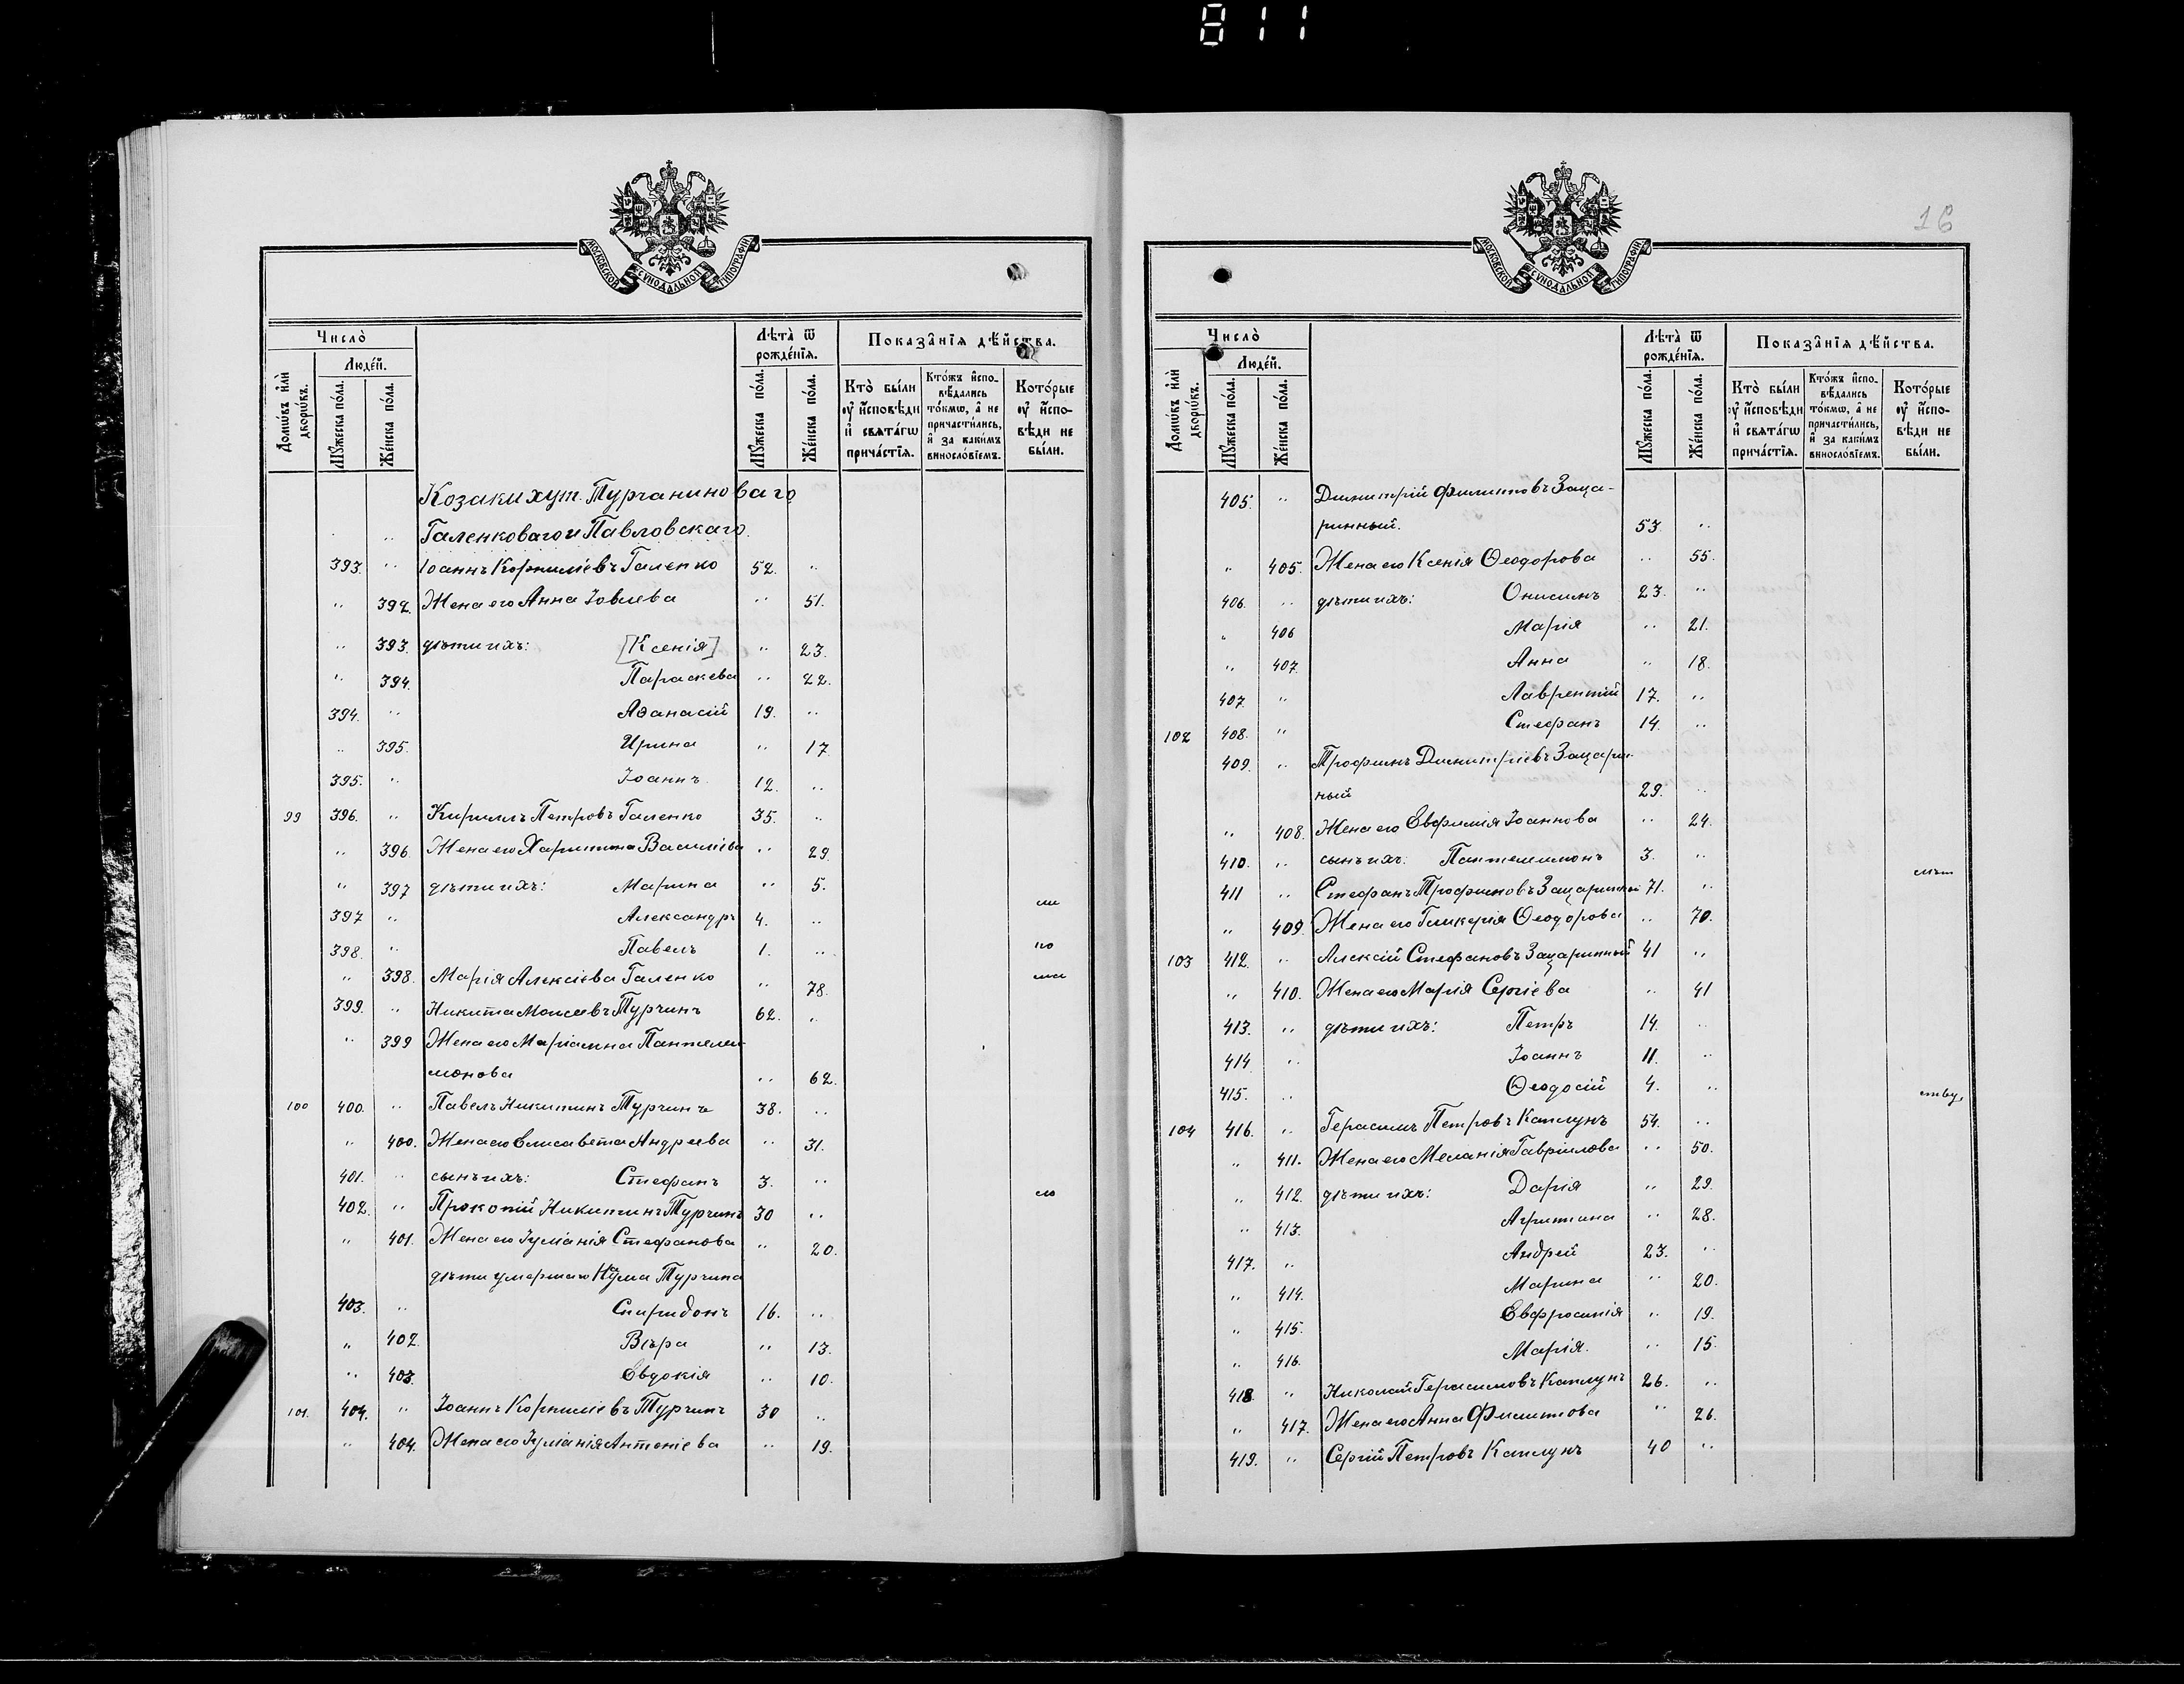 811
МОСКОВСКОЙ СѴНОДАЛЬНОЙ ТИПОГРАФІИ
Число̀
Люде́й.
Домѡ́въ и҆лѝ дворѡ́въ.
Мꙋ́жеска по́ла.
Же́нска по́ла.
Лѣ́та ѿ рожде́нїѧ.
Мꙋ́жеска по́ла.
Же́нска по́ла.
Показа̑нїѧ дѣ́йства.
Кто̀ бы́ли ᲂу҆ и҆сповѣ́ди и҆ свѧта́гѡ прича́стїѧ.
Кто́жъ и҆сповѣ́дались то́кмѡ, а҆ не причасти́лись, и҆ за каки́мъ винословїемъ.
Кото́рые ᲂу҆ и҆сповѣ́ди не бы́ли.
Козаки хут. Турчаниноваго
" Галенковаго и Павловскаго.
393. " Іоаннъ Корниліевъ Галенко 52. "
" 392. Жена его Анна Іовлева " 51.
" 393. дѣти ихъ: [Ксенія] " 23.
" 394. Параскева " 22.
394. " Аѳанасій 19. "
" 395. Ирина " 17
395. " Іоаннъ 12. "
99 396. " Кириллъ Петровъ Галенко 35. "
" 396. Жена его Харитина Василіева " 29.
" 397 дѣти ихъ: Марина " 5.
397 " Александръ 4. "
398. " Павелъ 1. "
" 398. Марія Алексіева Галенко " 78.
399. " Никита Моисеевъ Турчинъ 62. "
" 399 Жена его Маріамна Пантелеи-
монова " 62.
100 400. " Павелъ Никитинъ Турчинъ 38. "
" 400. Жена его Елисавета Андреева " 31.
401. " сынъ ихъ: Стефанъ 3. "
402. " Прокопій Никитинъ Турчинъ 30 "
" 401. Жена его Іуліанія Стефанова " 20.
дѣти умершаго Наума Турчина
403. " Спиридонъ 16. "
" 402. Вѣра " 13.
" 403. Евдокія " 10.
101. 404. " Іоаннъ Корниліевъ Турчинъ 30 "
" 404. Жена его Іуліанія Антоніева " 19.
16
МОСКОВСКОЙ СѴНОДАЛЬНОЙ ТИПОГРАФІИ
Число̀
Люде́й.
Домѡ́въ и҆лѝ дворѡ́въ.
Мꙋ́жеска по́ла.
Же́нска по́ла.
Лѣ́та ѿ рожде́нїѧ.
Мꙋ́жеска по́ла.
Же́нска по́ла.
Показа̑нїѧ дѣ́йства.
Кто̀ бы́ли ᲂу҆ и҆сповѣ́ди и҆ свѧта́гѡ прича́стїѧ.
Кто́жъ и҆сповѣ́дались то́кмѡ, а҆ не причасти́лись, и҆ за каки́мъ винословїемъ.
Кото́рые ᲂу҆ и҆сповѣ́ди не бы́ли.
405. " Димитрій Филиповъ Заца-
ринный. 53. "
" 405. Жена его Ксенія Ѳеодорова " 55.
406. " дѣти ихъ: Онисимъ 23. "
" 406 Марія " 21.
" 407. Анна " 18.
407. " Лаврентій 17. "
102 408. " Стефанъ 14. "
409. " Трофимъ Димитріевъ Зацарин-
ный 29. "
" 408. Жена его Евфимія Іоаннова " 24.
410. " сынъ ихъ: Пантелиимонъ 3. "
411 " Стефанъ Трофимовъ Зацаринный 71. "
" 409. Жена его Гликерія Ѳеодорова " 70.
103 412. " Алексій Стефановъ Зацаринный 41 "
" 410. Жена его Марія Сергіева " 41
413. " дѣти ихъ: Петръ 14. "
414 " Іоаннъ 11. "
415. " Ѳеодосій 4. "
104 416. " Герасимъ Петровъ Каплунъ 54. "
" 411. Жена его Меланія Гавріилова " 50.
" 412. дѣти ихъ: Дарія " 29.
" 413. Агрипина " 28.
417. " Андрей 23. "
" 414. Марина " 20.
" 415. Евфросинія " 19.
" 416. Марія. " 15.
418 " Николай Герасимовъ Каплунъ 26. "
" 417. Жена его Анна Филипова " 26.
419. " Сергій Петровъ Каплунъ 40 "